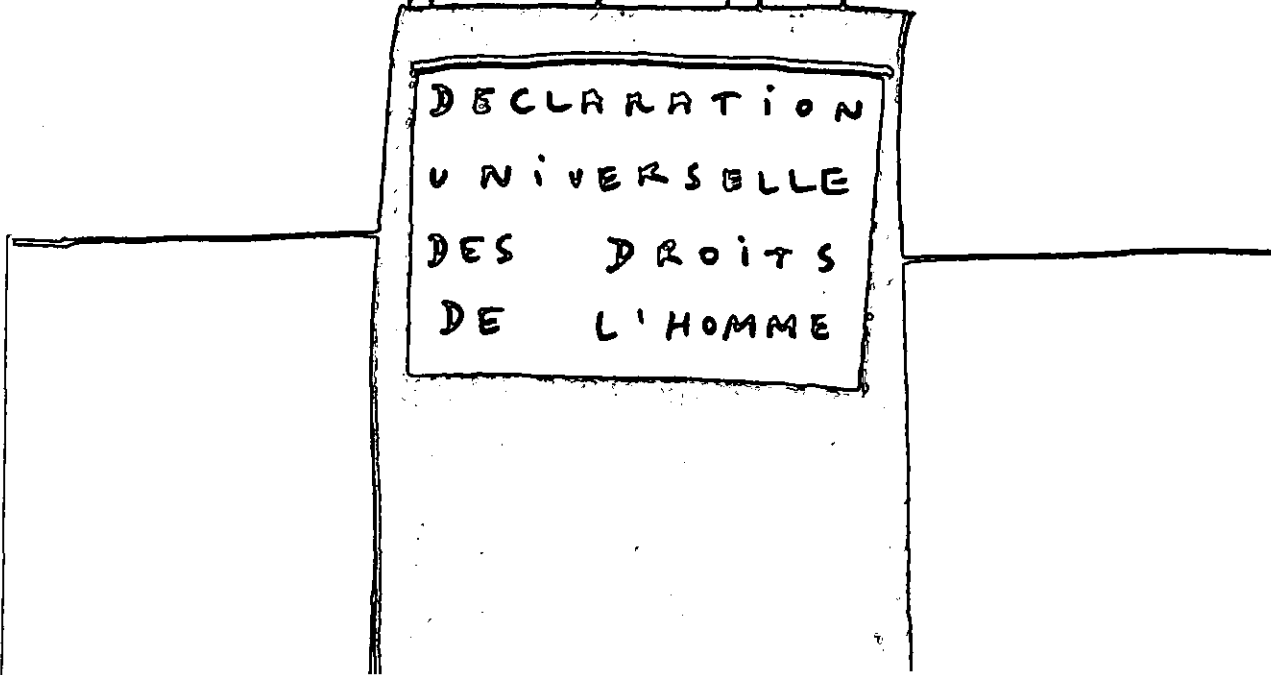 DECLARATiON
UNiVERSELLE
DES DROiTS
DE L'HOMME